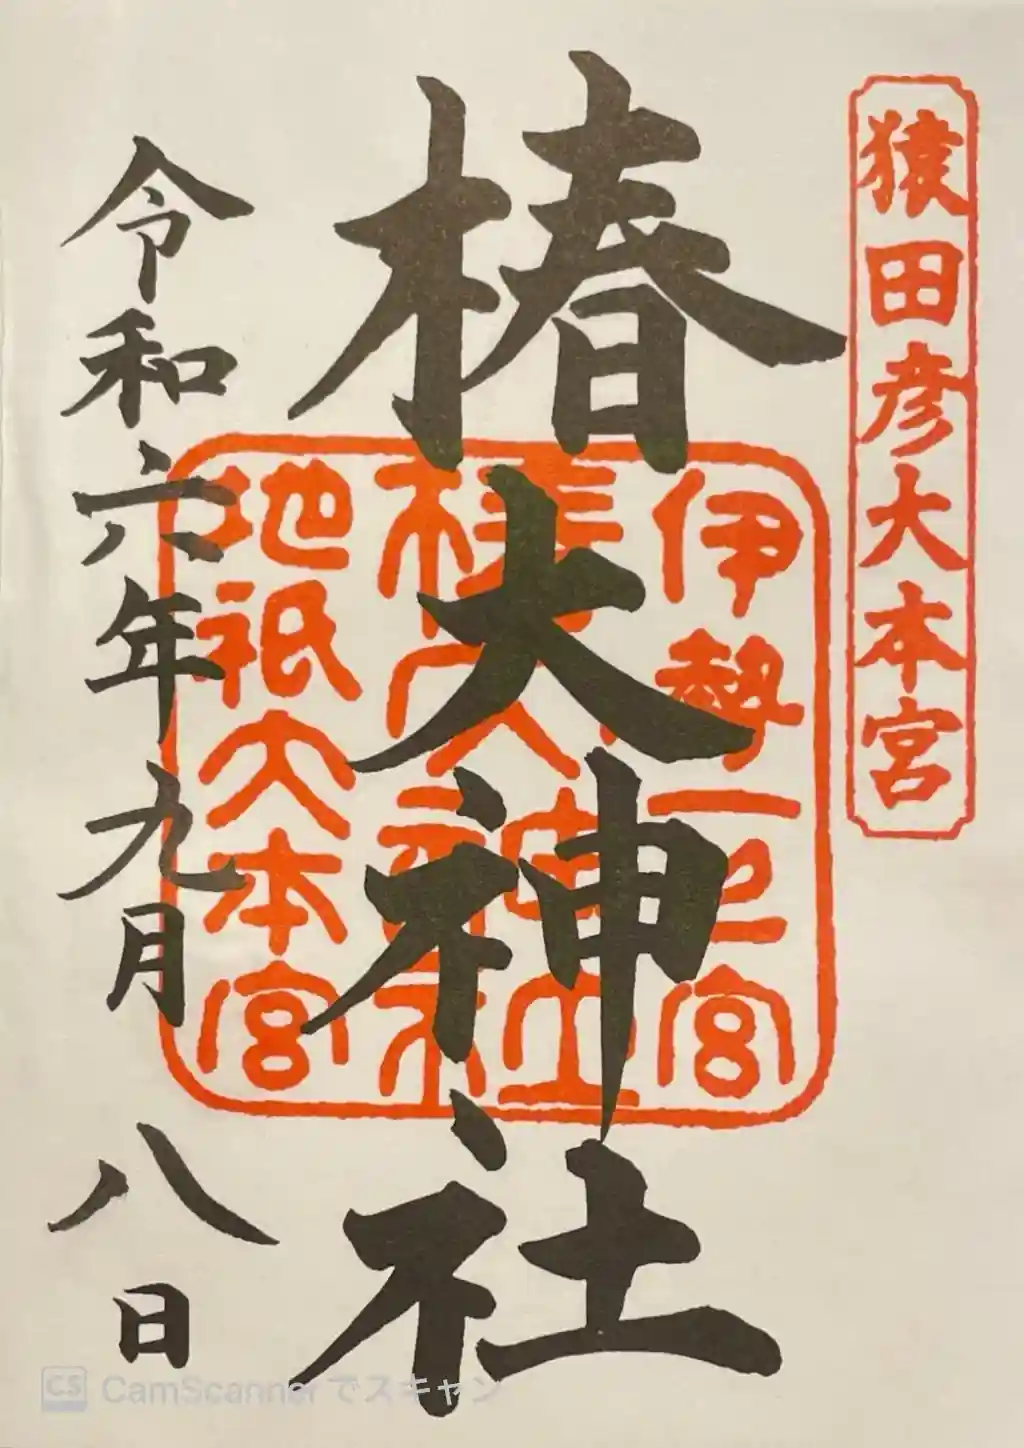 猿田彦大本宮
椿大神社
伊勢一之宮
椿大神社
地祇大本宮
令和六年九月八日
CS CamScannerでスキャン